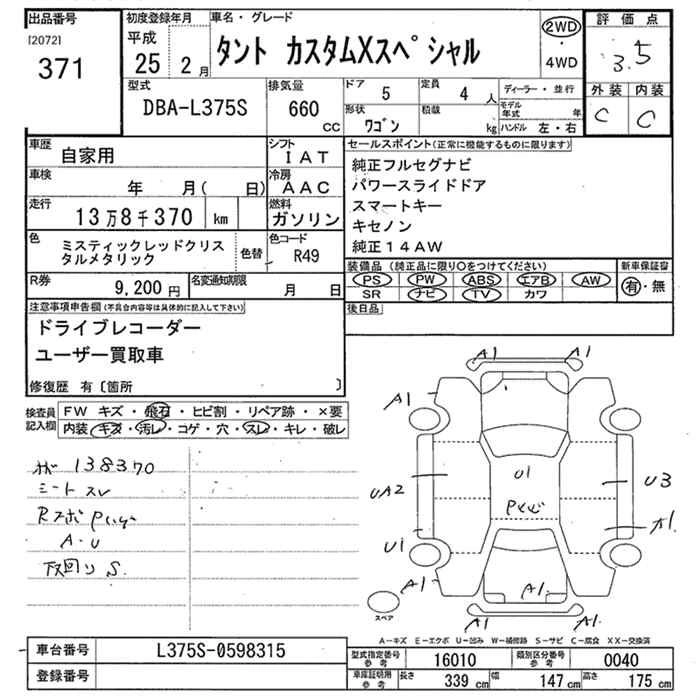 出品番号
[2072]
371
初度登録年月
平成
25 2月
車名・グレード
タント カスタムXスペシャル
2WD
・
4WD
評価点
3.5
外装 内装
C C
型式
DBA-L375S
排気量
660
cc
ドア
5
定員
4人
形状
ワゴン
積載
kg
ディーラー・並行
モデル年式 年
ハンドル 左・右
車歴
自家用
シフト
IAT
車検
年 月( 日)
冷房
AAC
走行
13万8千370 km
燃料
ガソリン
色
ミスティックレッドクリス
タルメタリック
色替
色コード
R49
R券
9,200円
名変通知期限
月 日
セールスポイント(正常に機能するものに限ります)
純正フルセグナビ
パワースライドドア
スマートキー
キセノン
純正14AW
装備品(純正品に限り○をつけてください)
PS PW ABS エアB AW
SR ナビ TV カワ
新車保証書
有・無
後日品
注意事項申告欄(不具合内容等は具体的に記入して下さい)
ドライブレコーダー
ユーザー買取車
修復歴 有〔箇所 〕
検査員
記入欄
FW キズ・飛石・ヒビ割・リペア跡・×要
内装・キズ・汚レ・コゲ・穴・スレ・キレ・破レ
138370
シート スレ
A・U
下回り S.
A1 A1
A1
U1
UA2
U3
A1.
U1
A1
A1.
A1 A1.
スペア
A-キズ E-エクボ U-凹み W-補修跡 S-サビ C-腐食 XX-交換済
車台番号
L375S-0598315
登録番号
型式指定番号
参考
16010
類別区分番号
参考
0040
車庫証明用
参考
長さ
339 cm
幅
147 cm
高さ
175 cm